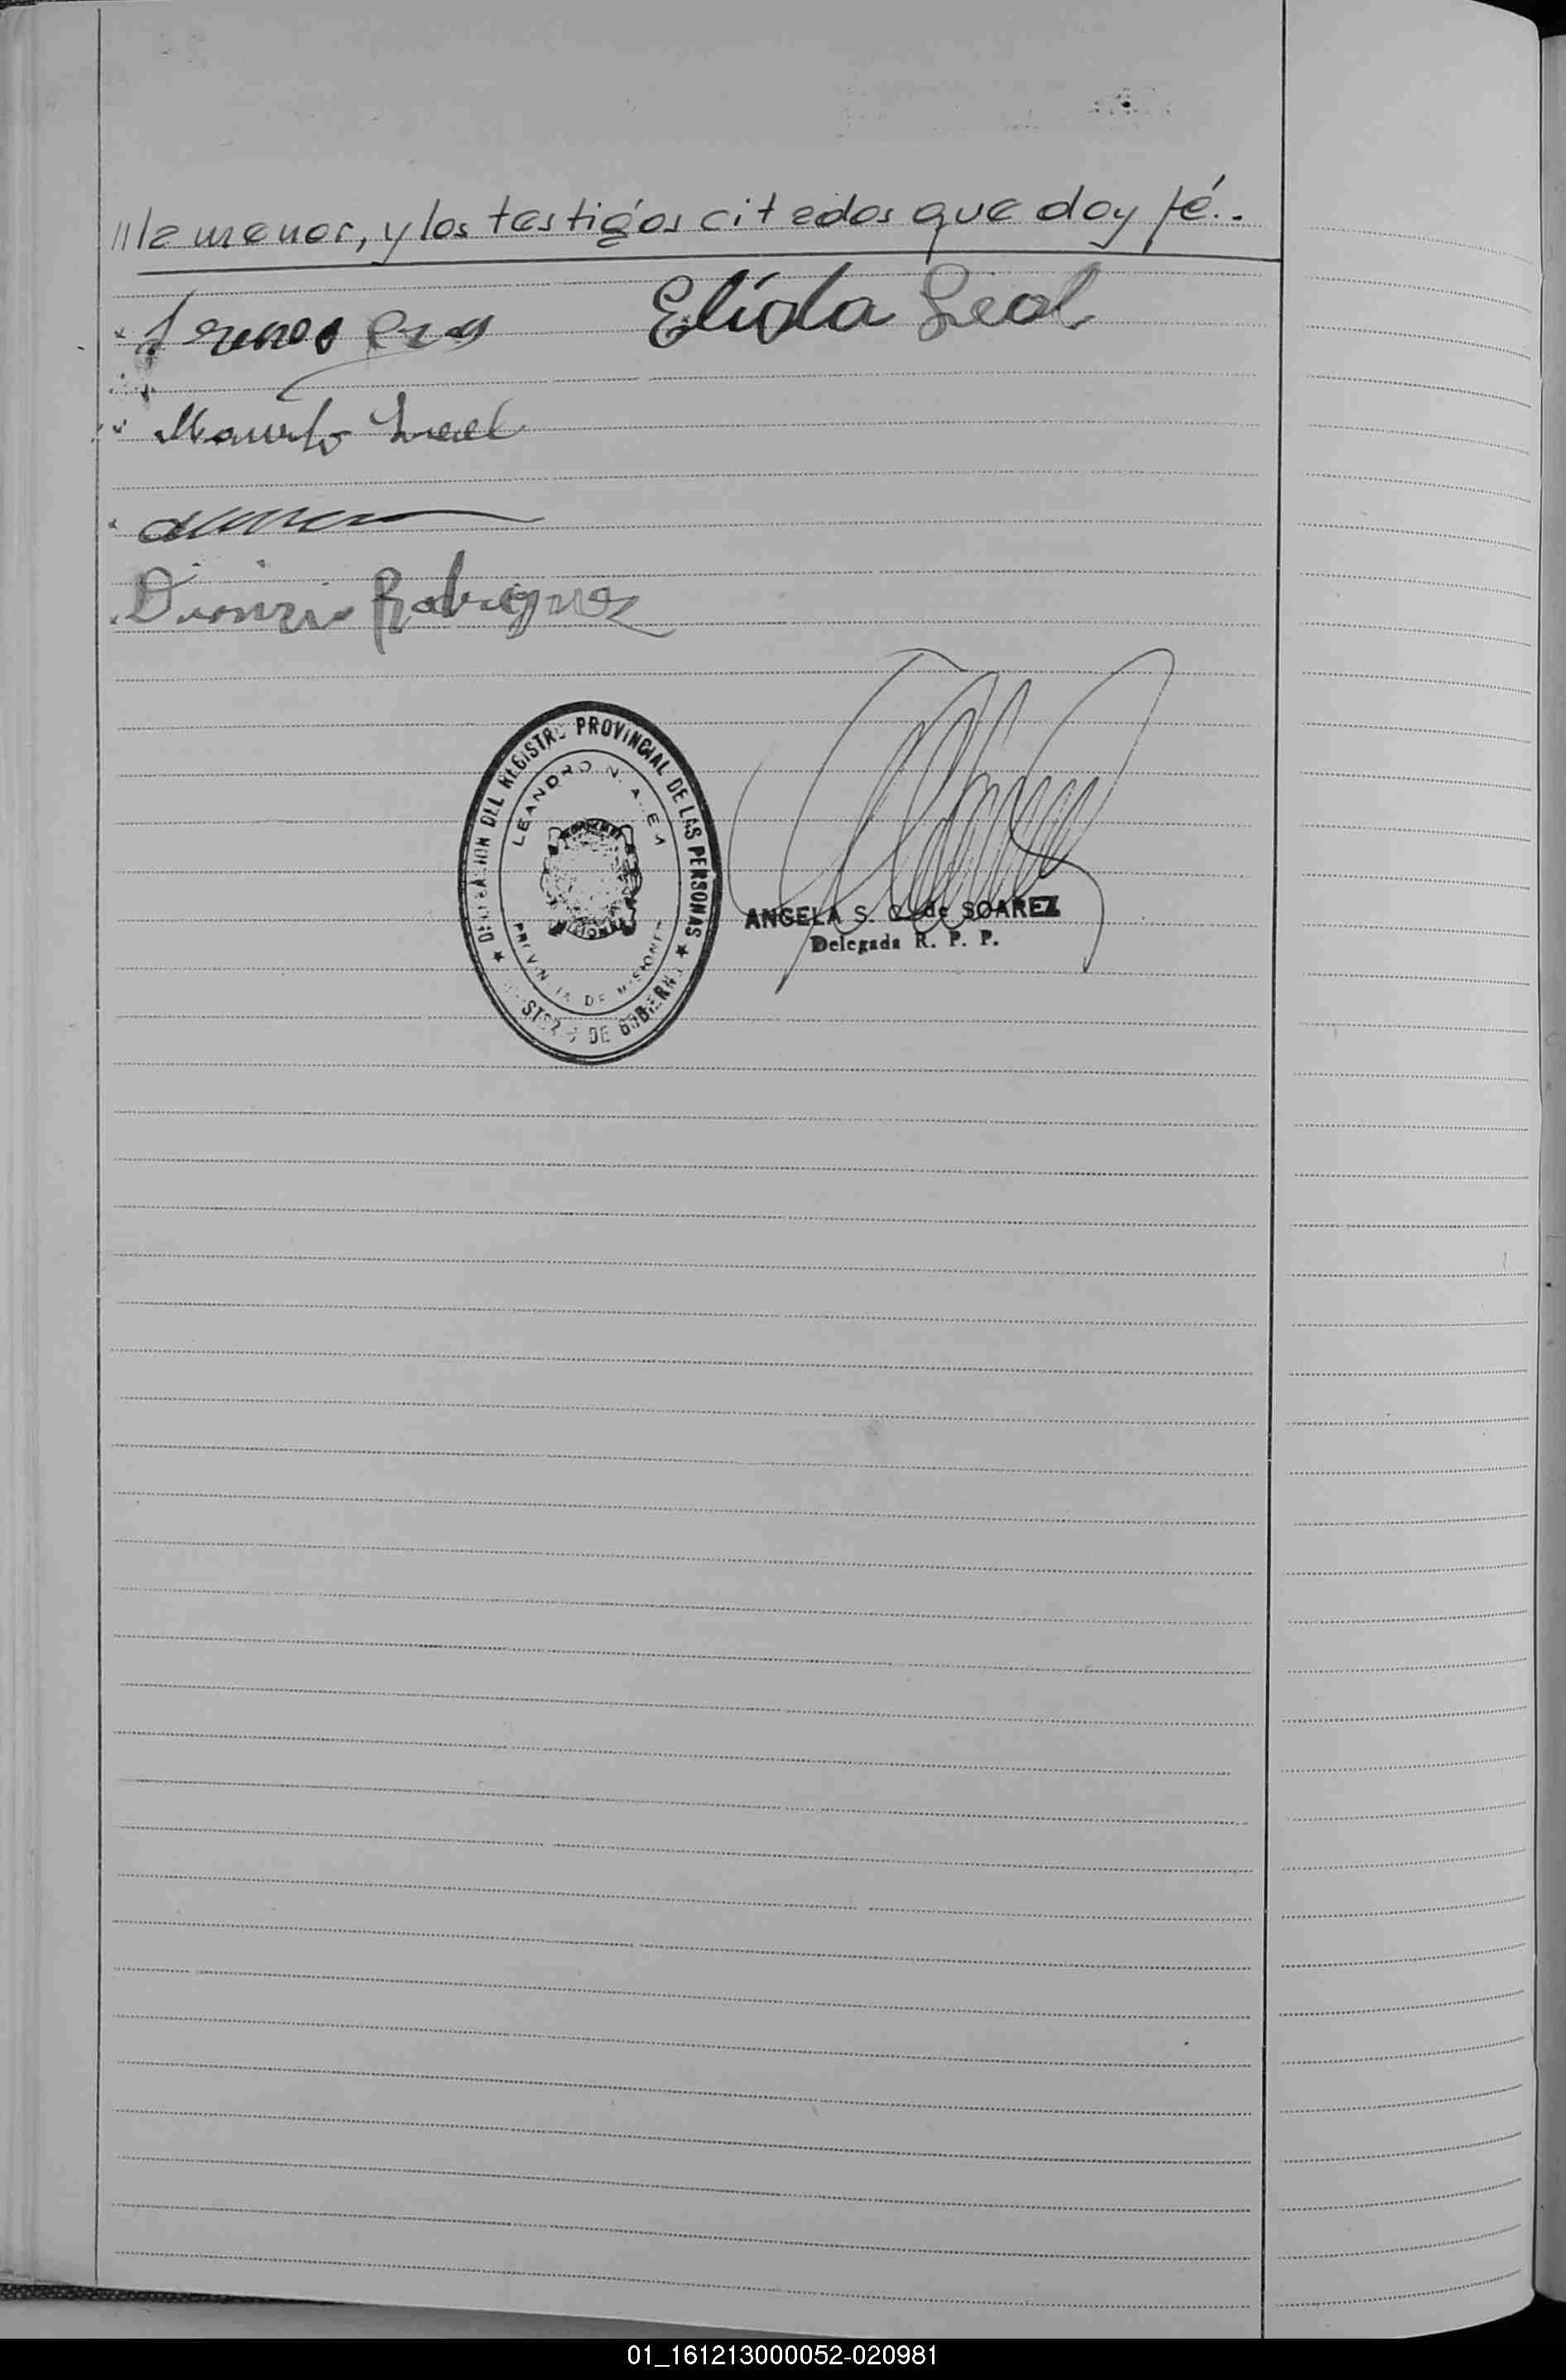 ///la menor, y los testigos citados que doy fé.-
Elida Leal
Rodriguez
DELEGACION DEL REGISTRO PROVINCIAL DE LAS PERSONAS
LEANDRO N. ALEM
PROVINCIA DE MISIONES
★ MINISTERIO DE GOBIERNO ★
ANGELA S. de SOAREZ
Delegada R. P. P.
01_161213000052-020981